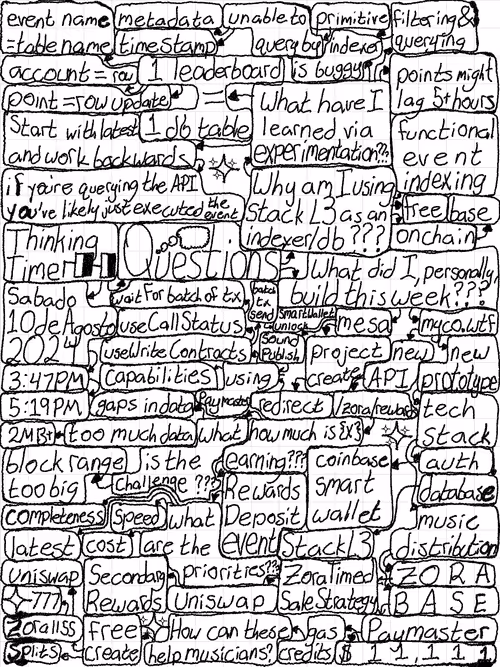 event name
=table name
metadata
timestamp
unable to
query by
primitive
indexer
filtering &
querying
account = row
1 leaderboard
is buggy
points might
lag 5+ hours
point = row update
=
What have I
learned via
experimentation??
Start with latest
and work backwards
1 db table
functional
event
indexing
if you're querying the API
you've likely just executed the event
Why am I using
Stack L3 as an
indexer/db ???
free
base
onchain
Thinking
Timer
Questions
What did I, personally,
build this week???
Sabado
10 de Agosto
2024
wait for batch of tx
batch
tx
send
Smart Wallet
unlock
mesa
myco.wtf
useCallStatus
Sound
Publish
useWriteContracts
project
create
new
API
new
prototype
3:47PM
capabilities
using
5:19PM
gaps in data
Paymaster
redirect
/zora/rewards
tech
stack
2MB+
too much data
What
how much is {x}
earning???
block range
too big
is the
challenge ???
coinbase
smart
wallet
auth
database
Rewards
Deposit
event
completeness
Speed
what
are the
priorities??
music
distribution
latest
cost
Stack L3
uniswap
777
Secondary
Rewards
Uniswap
Zora limed
Sale Strategy
ZORA
BASE
Zora 1155
Splits
free
create
How can these
help musicians?
gas
credits
Paymaster
$ 1 1, 1 1, 1